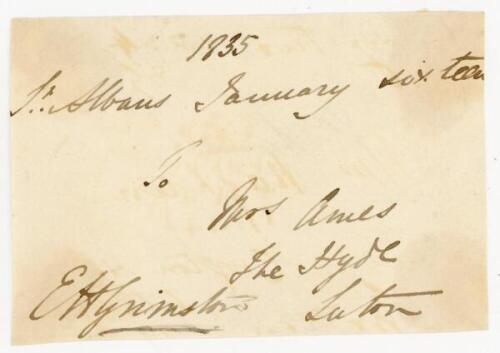 1835
St. Albans January sixteen
To
Mrs Ames
The Hyde
EHGrimston Luton